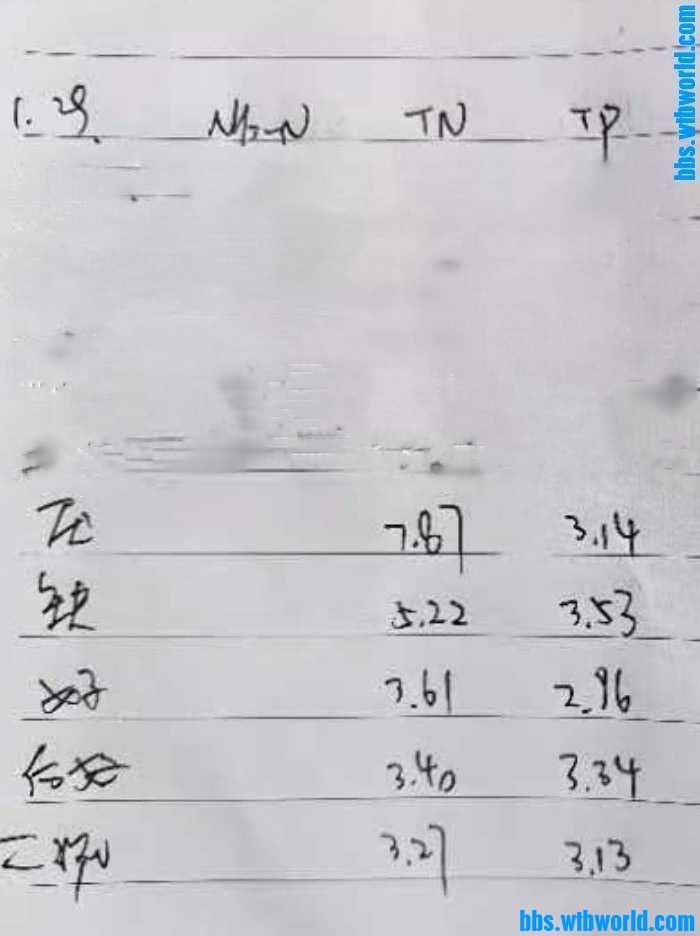 bbs.wtbworld.com
1.29. NH3-N TN TP
7.87 3.14
缺 5.22 3.53
好 3.61 2.96
3.40 3.34
二好 3.27 3.13
bbs.wtbworld.com